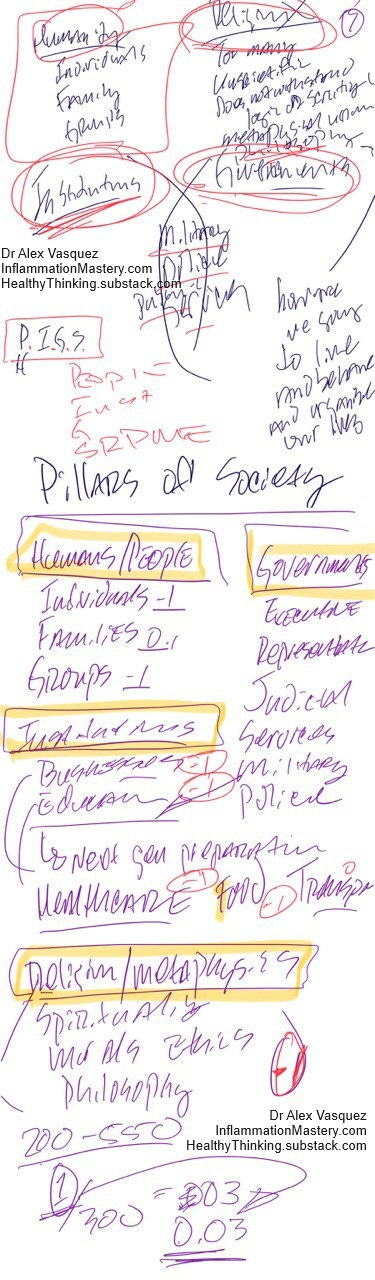 Humanity
Individuals
Family
Groups
Institutions
Religion
For many
Unscientific
Does not withstand
logic or scrutiny
metaphysical
Philosophy
Governments
Military
Police
Services
Dr Alex Vasquez
InflammationMastery.com
HealthyThinking.substack.com
P.I.G.S.
H
PEOPLE
G
how are
we going
to live
and behave
and organize
our lives
Pillars of Society
Humans/PEOPLE
Individuals -1
FAMILIES 0.1
Groups -1
Institutions
Businesses -1
Education -1
↳ Next gen preparation
HEALTHCARE -1 FOOD -1 Transpo 0
Governments
EXECUTIVE
Representative
Judicial
Services
Military
Police
Religion/metaphysics
Spirituality
Morals Ethics
Philosophy
-1
200-550
Dr Alex Vasquez
InflammationMastery.com
HealthyThinking.substack.com
1/300 = .003
0.03